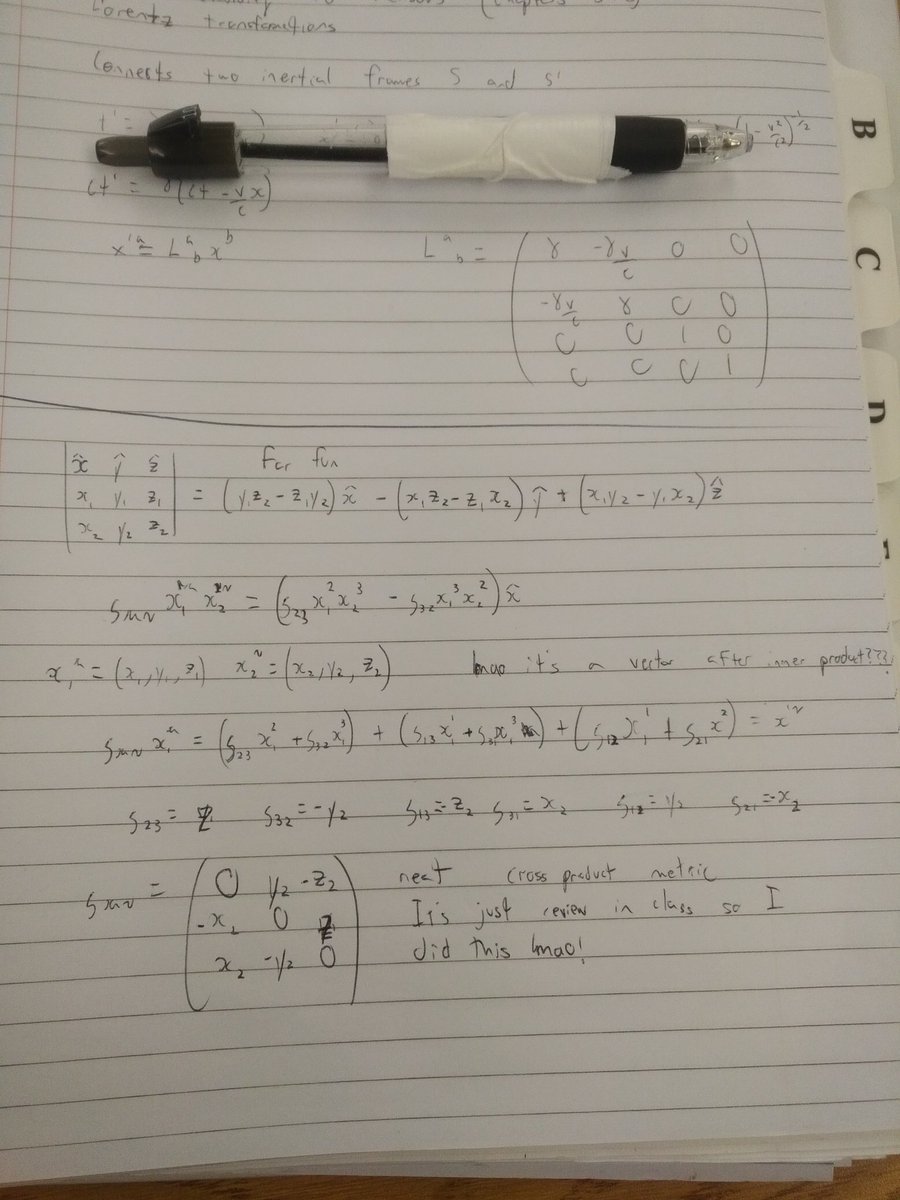 Lorentz transformations
Connects two inertial frames S and S'
t' =
- v²/c²)^-1/2
ct' = γ(ct - v/c x)
x'^a = L^a_b x^b
L^a_b = ( γ -γv/c 0 0
-γv/c γ 0 0
0 0 1 0
0 0 0 1 )
B
C
D
For fun
| x̂ ŷ ẑ |
| x₁ y₁ z₁ | = (y₁z₂ - z₁y₂) x̂ - (x₁z₂ - z₁x₂) ŷ + (x₁y₂ - y₁x₂) ẑ
| x₂ y₂ z₂ |
ς_μν x₁^μ x₂^ν = (ς₂₃ x₁² x₂³ - ς₃₂ x₁³ x₂²) x̂
x₁^μ = (x₁, y₁, z₁) x₂^ν = (x₂, y₂, z₂) lmao it's a vector after inner product???
ς_μν x₁^μ = (ς₂₃ x₁² + ς₃₂ x₁³) + (ς₁₃ x₁¹ + ς₃₁ x₁³) + (ς₁₂ x₁¹ + ς₂₁ x²) = x'^ν
ς₂₃ = z ς₃₂ = -y₂ ς₁₃ = -z₂ ς₃₁ = x₂ ς₁₂ = y₂ ς₂₁ = -x₂
ς_μν = ( 0 y₂ -z₂
-x₂ 0 z
x₂ -y₂ 0 )
neat cross product metric
It's just review in class so I
did this lmao!